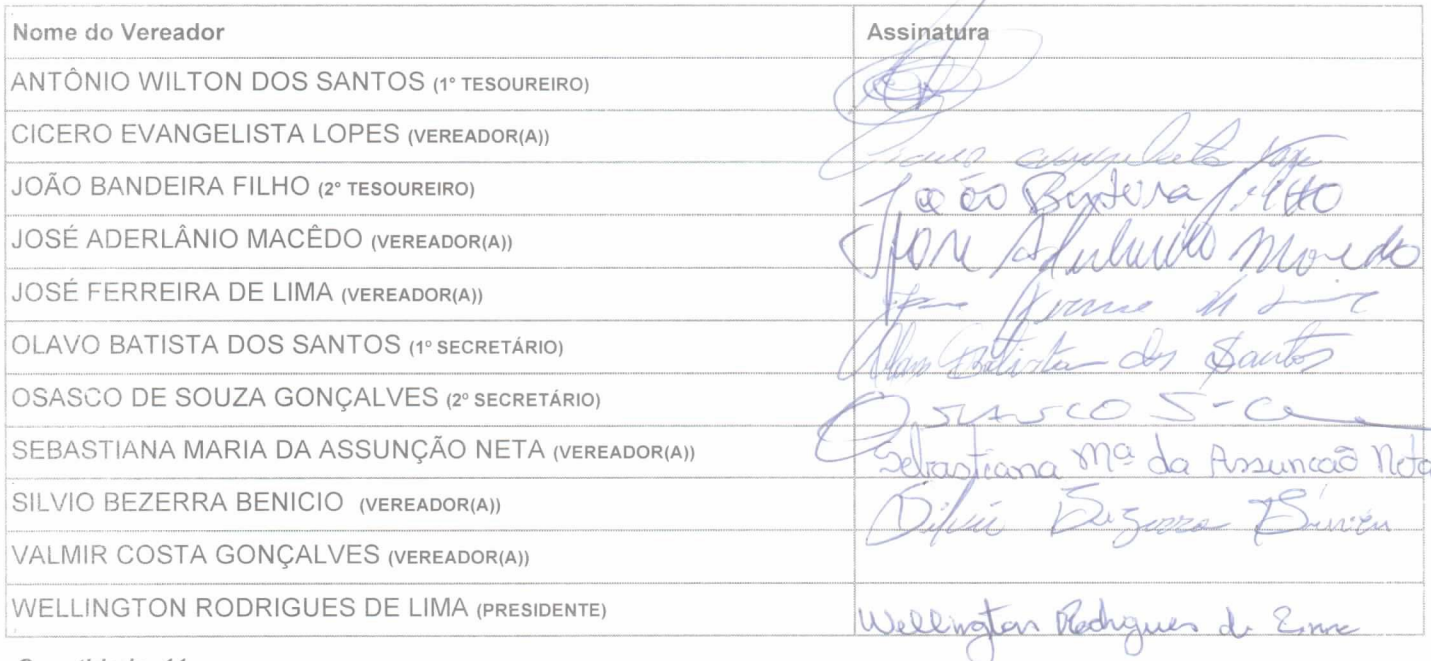 Nome do Vereador Assinatura
ANTÔNIO WILTON DOS SANTOS (1º TESOUREIRO)
CICERO EVANGELISTA LOPES (VEREADOR(A))
JOÃO BANDEIRA FILHO (2º TESOUREIRO) João Bandeira Filho
JOSÉ ADERLÂNIO MACÊDO (VEREADOR(A)) José Macedo
JOSÉ FERREIRA DE LIMA (VEREADOR(A))
OLAVO BATISTA DOS SANTOS (1º SECRETÁRIO) Olavo Batista dos Santos
OSASCO DE SOUZA GONÇALVES (2º SECRETÁRIO) OSASCO S
SEBASTIANA MARIA DA ASSUNÇÃO NETA (VEREADOR(A)) Sebastiana Mª da Assuncaõ Neta
SILVIO BEZERRA BENICIO (VEREADOR(A)) Silvio Bezerra
VALMIR COSTA GONÇALVES (VEREADOR(A))
WELLINGTON RODRIGUES DE LIMA (PRESIDENTE) Wellington Rodrigues de